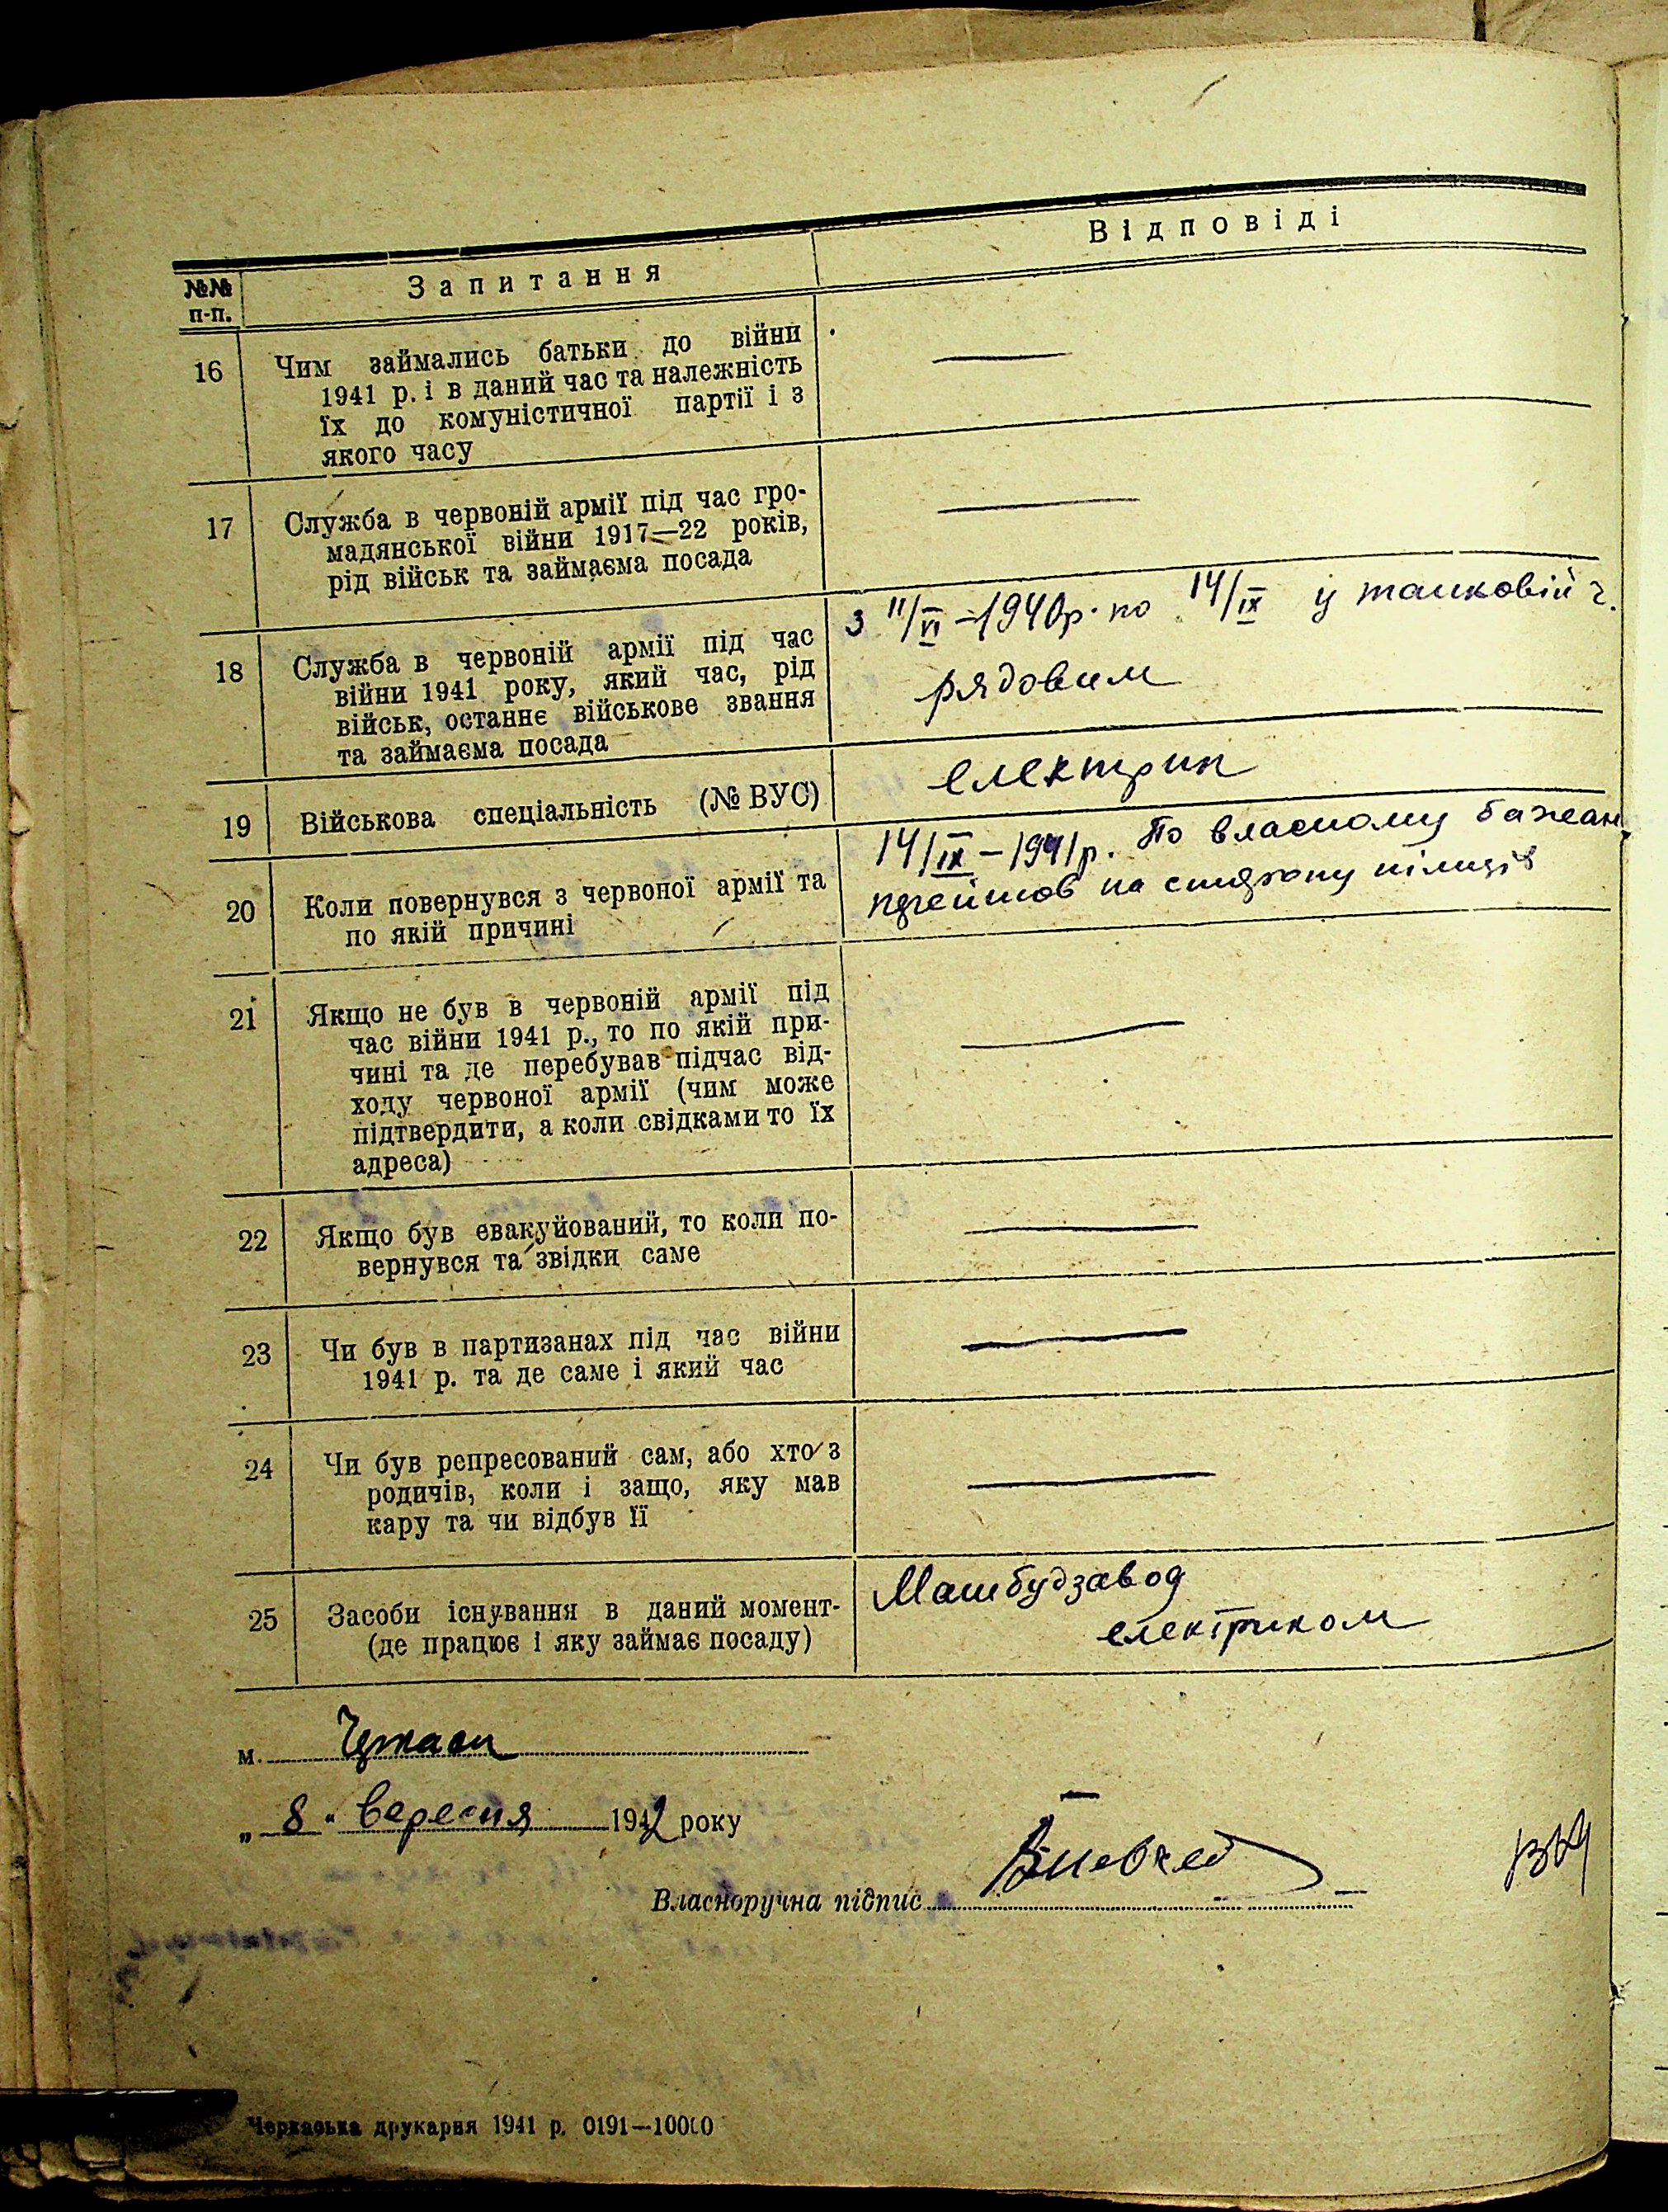 Відповіді
№№ Запитання
п-п.
16 Чим займались батьки до війни —
1941 р. і в даний час та належність
їх до комуністичної партії і з
якого часу
17 Служба в червоній армії під час гро- —
мадянської війни 1917—22 років,
рід військ та займаєма посада
з 11/VI – 1940р. по 14/IX у танковій ч.
18 Служба в червоній армії під час
війни 1941 року, який час, рід
військ, останнє військове звання
та займаєма посада
рядовим
19 Військова спеціальність (№ ВУС) електрик
14/IX – 1941р. По власному бажан.
20 Коли повернувся з червоної армії та
по якій причині
на сторону
21 Якщо не був в червоній армії під —
час війни 1941 р., то по якій при-
чині та де перебував підчас від-
ходу червоної армії (чим може
підтвердити, а коли свідками то їх
адреса)
22 Якщо був евакуйований, то коли по- —
вернувся та звідки саме
23 Чи був в партизанах під час війни —
1941 р. та де саме і який час
24 Чи був репресований сам, або хто з —
родичів, коли і защо, яку мав
кару та чи відбув її
25 Засоби існування в даний момент- Машбудзавод
(де працює і яку займає посаду) електриком
м.
„ 8 " вересня 1942 року
Власноручна підпис
Черкаська друкарня 1941 р. 0191—10000